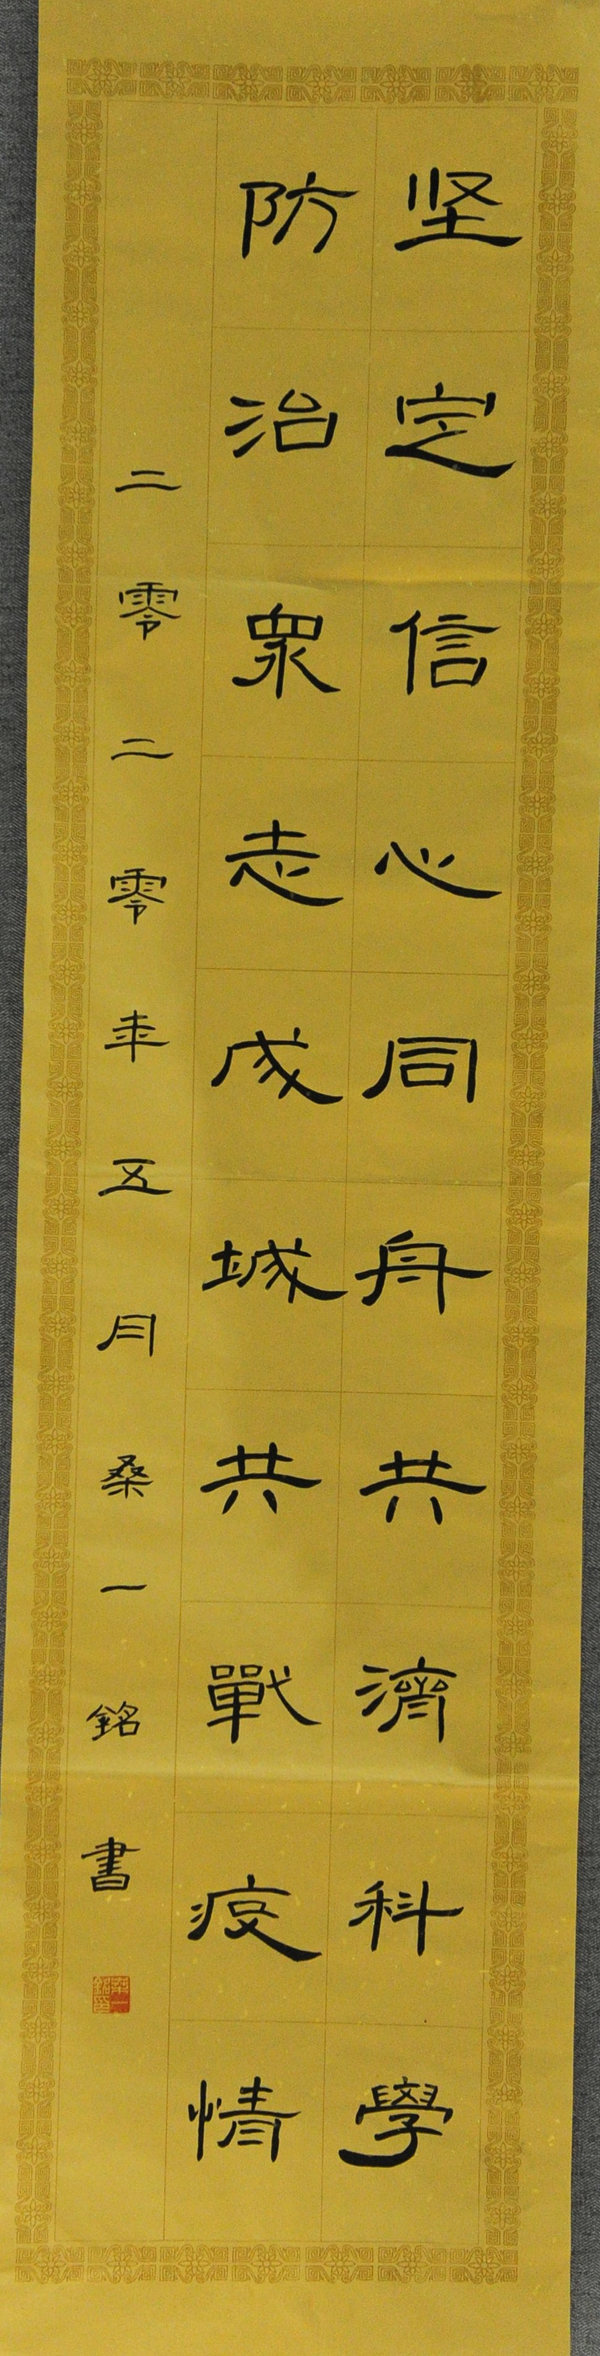 坚定信心同舟共濟科學
防治眾志成城共戰疫情
二零二零年五月桑一銘書
桑一銘印